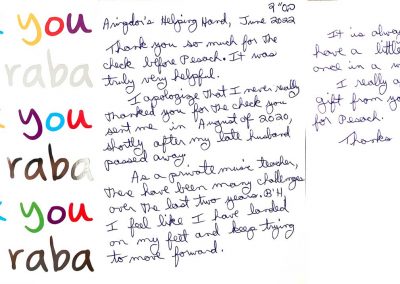 you
raba
you
raba
you
raba
Avingdor's Helping Hand, June 2022
Thank you so much for the
check before Pesach. It was
truly very helpful.
I apologize that I never really
thanked you for the check you
sent me in August of 2020,
shortly after my late husband
passed away.
As a private music teacher,
there have been many challenges
over the last two years. B'H
I feel like I have landed
on my feet and keep trying
to move forward.
It is alwa
have a little
once in a w
I really a
gift from yo
for Pesach.
Thanks